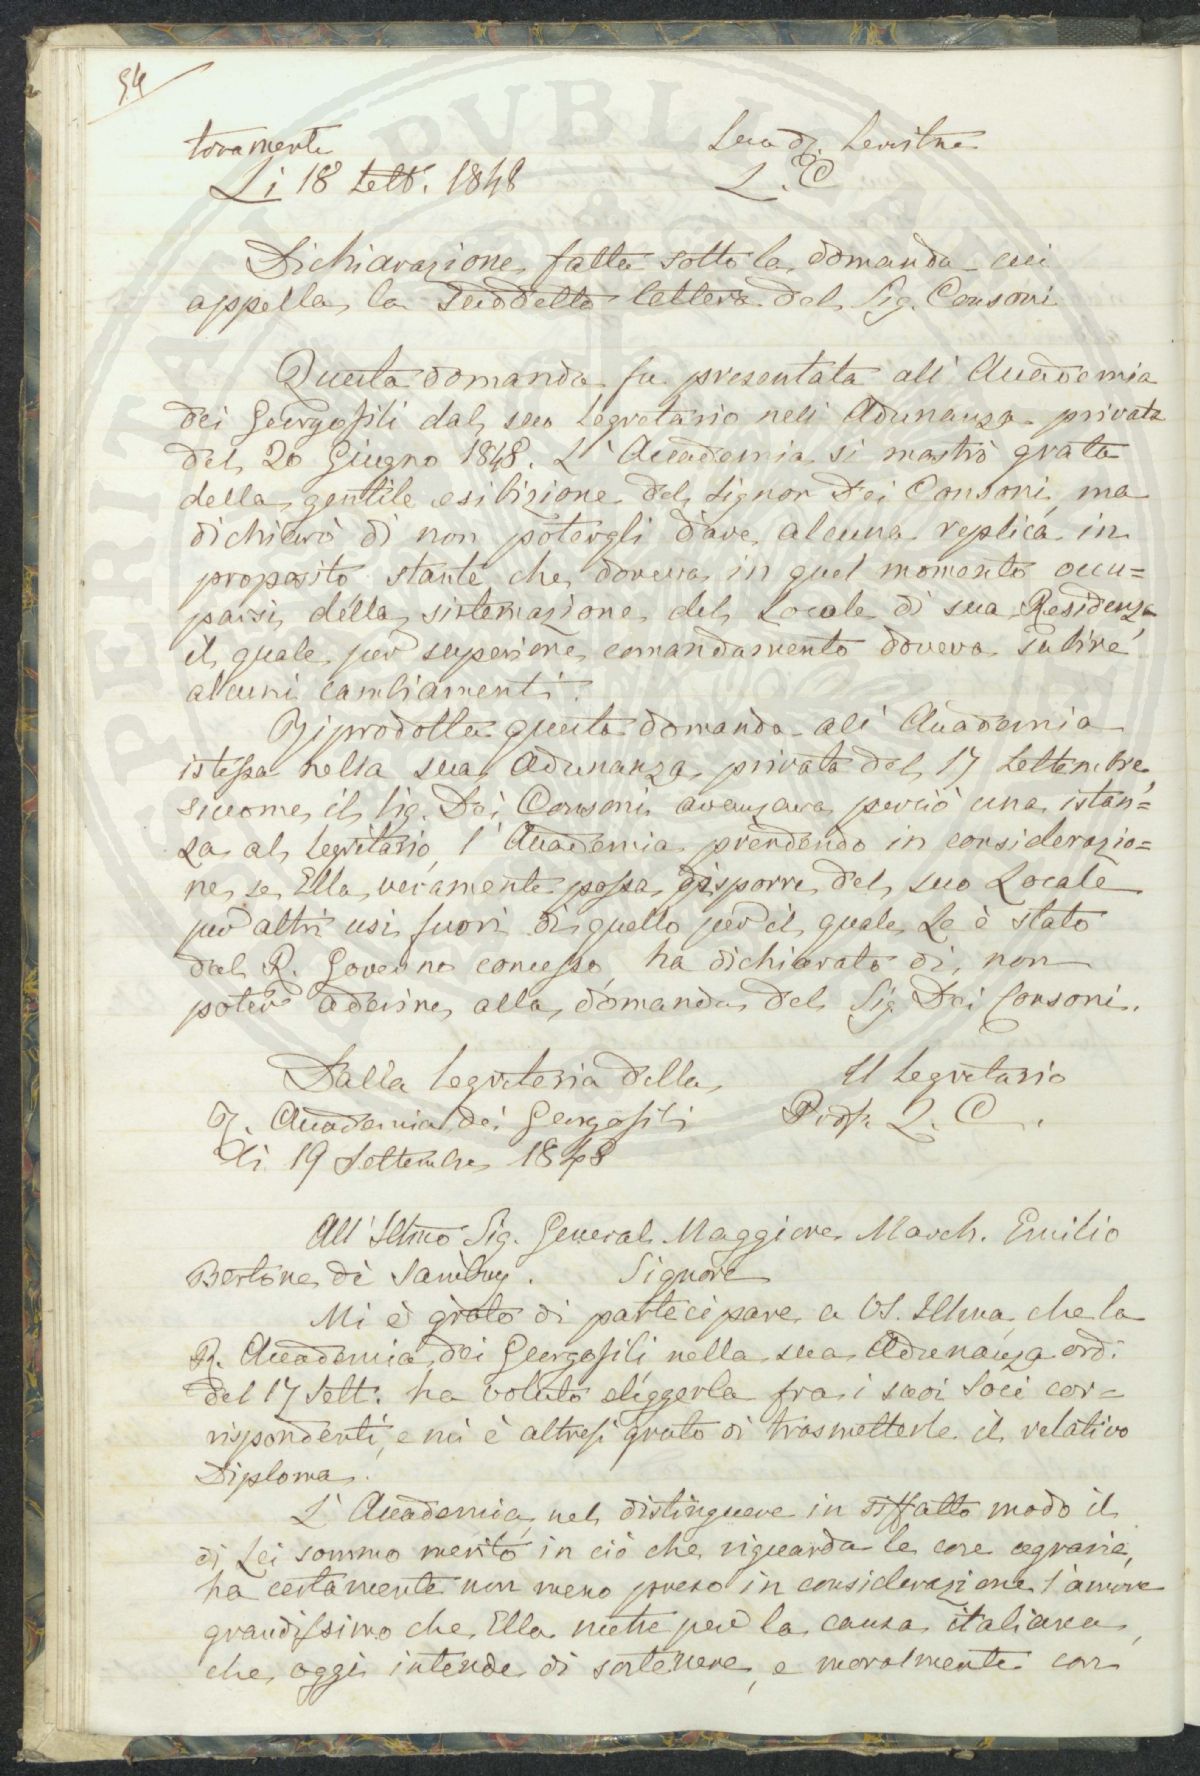 94
toramente
Li 18 Sett. 1848
L. C.
Dichiarazione fatta sotto la domanda cui
appella la suddetta lettera del Sig. Consoni
Questa domanda fu presentata all' Accademia
dei Georgofili dal suo Segretario nell' Adunanza privata
del 20 Giugno 1848. L' Accademia si mostrò grata
della gentile esibizione del Signor Dei Consoni, ma
dichiarò di non potergli dare alcuna replica in
proposito stante che doveva in quel momento occu=
parsi della sistemazione del Locale di sua Residenza,
il quale per superiore comandamento doveva subire
alcuni cambiamenti.
Riprodotta questa domanda all' Accademia
istessa nella sua Adunanza privata del 17 Settembre,
siccome il Sig. Dei Consoni avanzava perciò una istan=
za al Segretario, l' Accademia prendendo in considerazio=
ne se Ella veramente possa disporre del suo Locale
per altri usi fuori di quello per il quale Le è stato
dal R. Governo concesso, ha dichiarato di non
poter aderire alla domanda del Sig. Dei Consoni.
Dalla Segreteria della
Il Segretario
R. Accademia dei Georgofili
Prof. L. C.
Li 19 Settembre 1848
All' Illmo Sig. General Maggiore March. Emilio
Bertone di Sambuy. Signore
Mi è grato di partecipare a VS. Illma, che la
R. Accademia dei Georgofili nella sua Adunanza ord.
del 17 Sett. ha voluto eleggerla fra i suoi Soci cor=
rispondenti, e mi è altresì grato di trasmetterle il relativo
Diploma.
L' Accademia, nel distinguere in siffatto modo il
di Lei sommo merito in ciò che riguarda le cose agrarie,
ha certamente non meno preso in considerazione l' amore
grandissimo che Ella nutre per la causa italiana,
che oggi intende di sostenere, e moralmente con